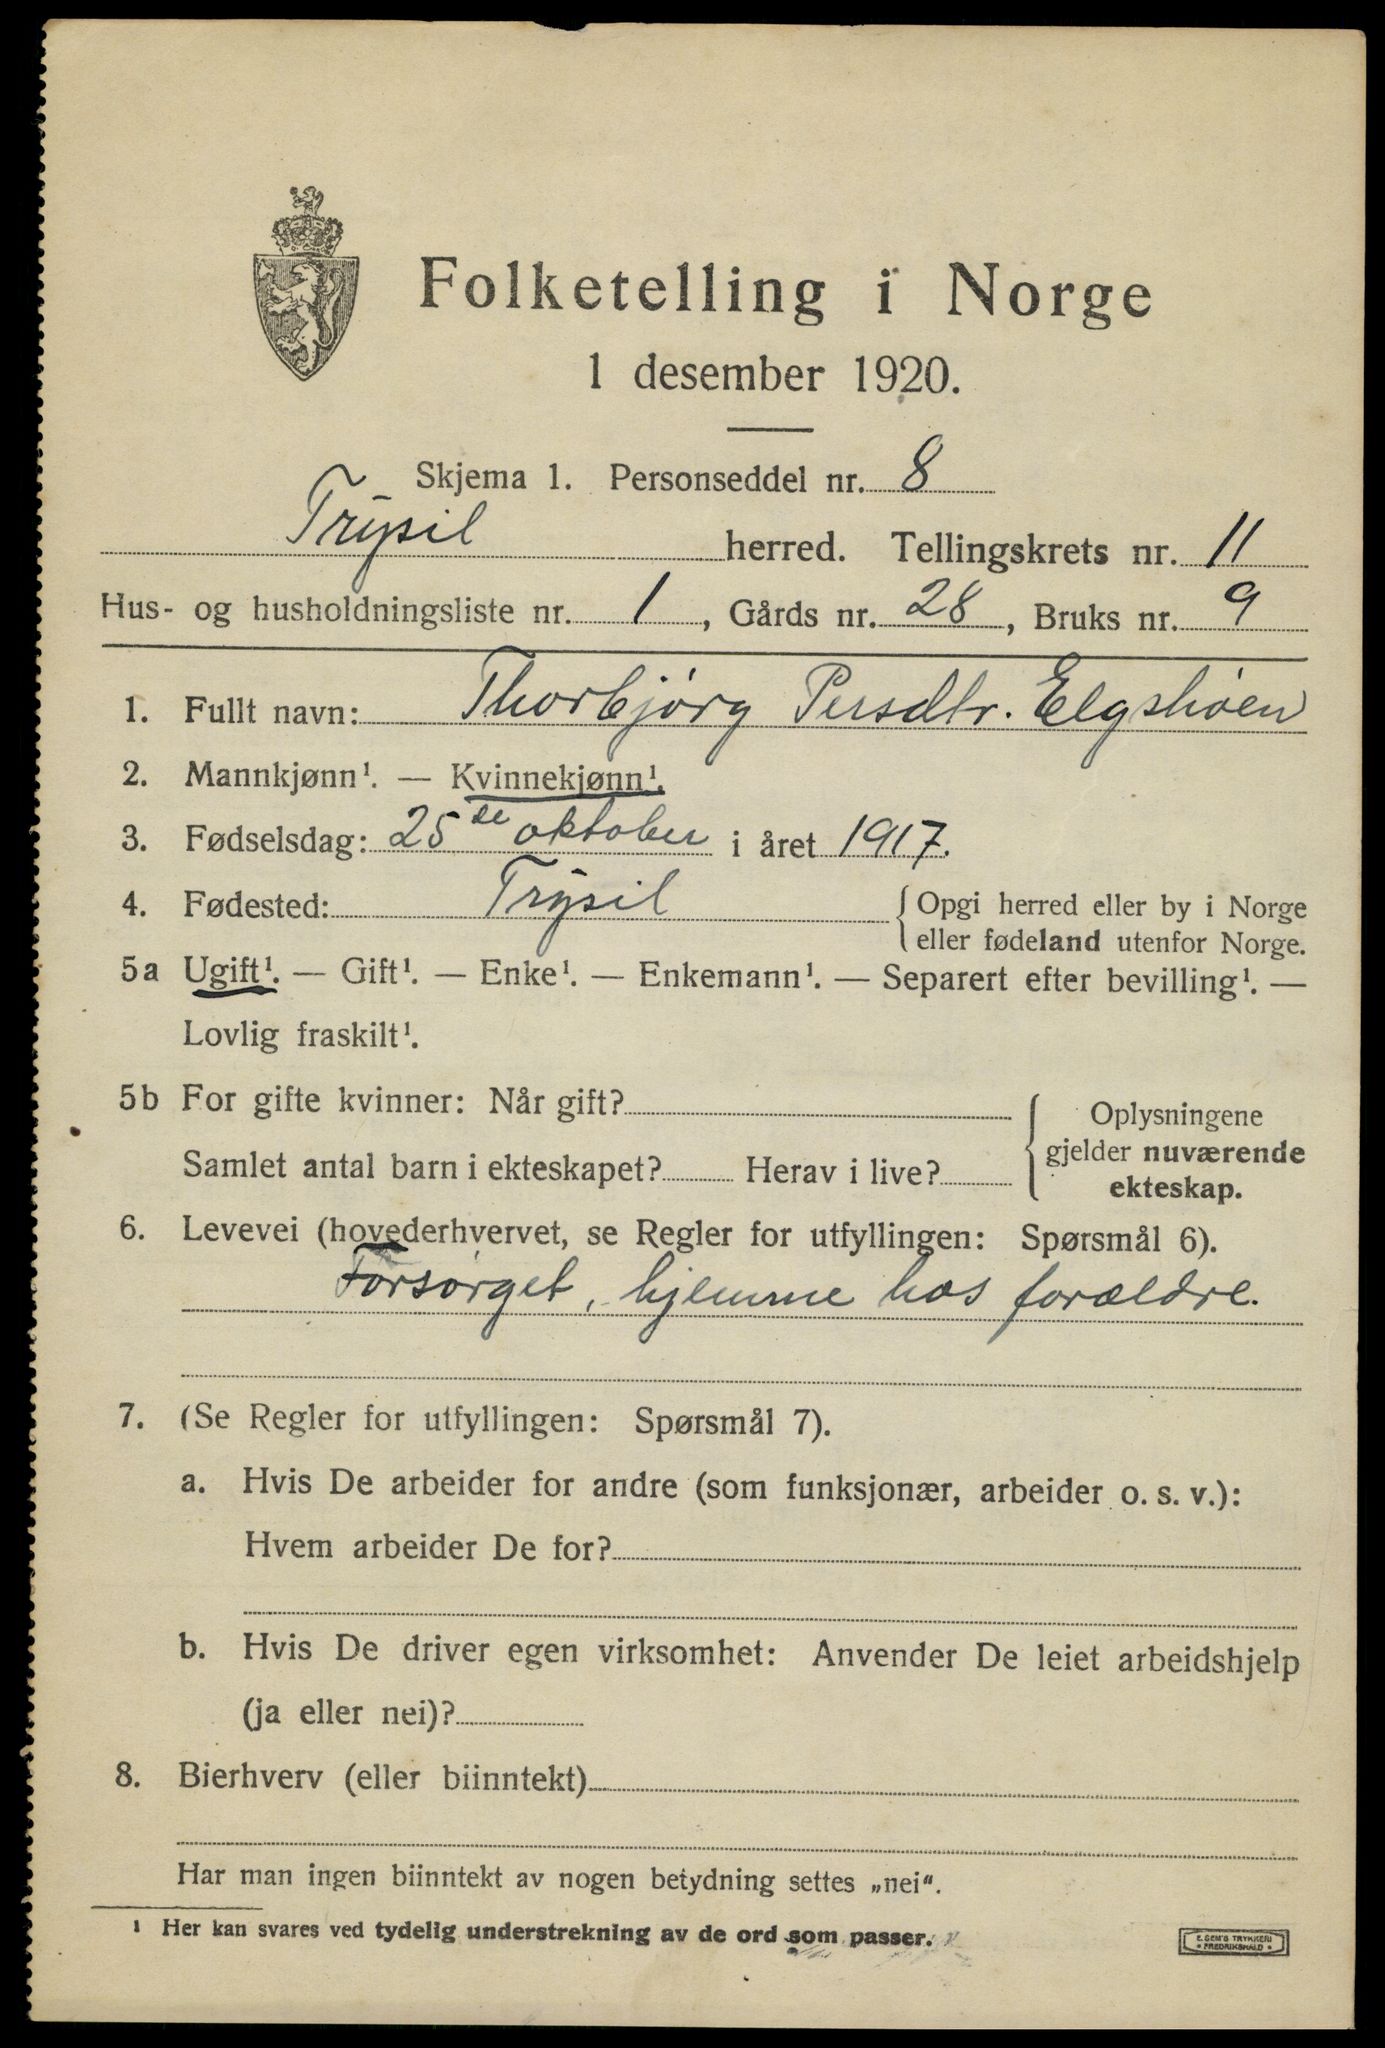 Folketelling i Norge
1 desember 1920.
Skjema 1. Personseddel nr. 8
Trysil herred. Tellingskrets nr. 11
Hus- og husholdningsliste nr. 1, Gårds nr. 28, Bruks nr. 9
1. Fullt navn: Thorbjørg Persdtr. Elgshøen
2. Mannkjønn¹. — Kvinnekjønn¹.
3. Fødselsdag: 25de oktober i året 1917.
4. Fødested: Trysil { Opgi herred eller by i Norge
eller fødeland utenfor Norge.
5a Ugift¹. — Gift¹. — Enke¹. — Enkemann¹. — Separert efter bevilling¹. —
Lovlig fraskilt¹.
5b For gifte kvinner: Når gift? { Oplysningene
gjelder nuværende
Samlet antal barn i ekteskapet? Herav i live?
ekteskap.
6. Levevei (hovederhvervet, se Regler for utfyllingen: Spørsmål 6).
Forsørget, hjemme hos forældre.
7. (Se Regler for utfyllingen: Spørsmål 7).
a. Hvis De arbeider for andre (som funksjonær, arbeider o. s. v.):
Hvem arbeider De for?
b. Hvis De driver egen virksomhet: Anvender De leiet arbeidshjelp
(ja eller nei)?
8. Bierhverv (eller biinntekt)
Har man ingen biinntekt av nogen betydning settes „nei“.
¹ Her kan svares ved tydelig understrekning av de ord som passer.
E. SEM'S TRYKKERI
* FREDRIKSHALD *